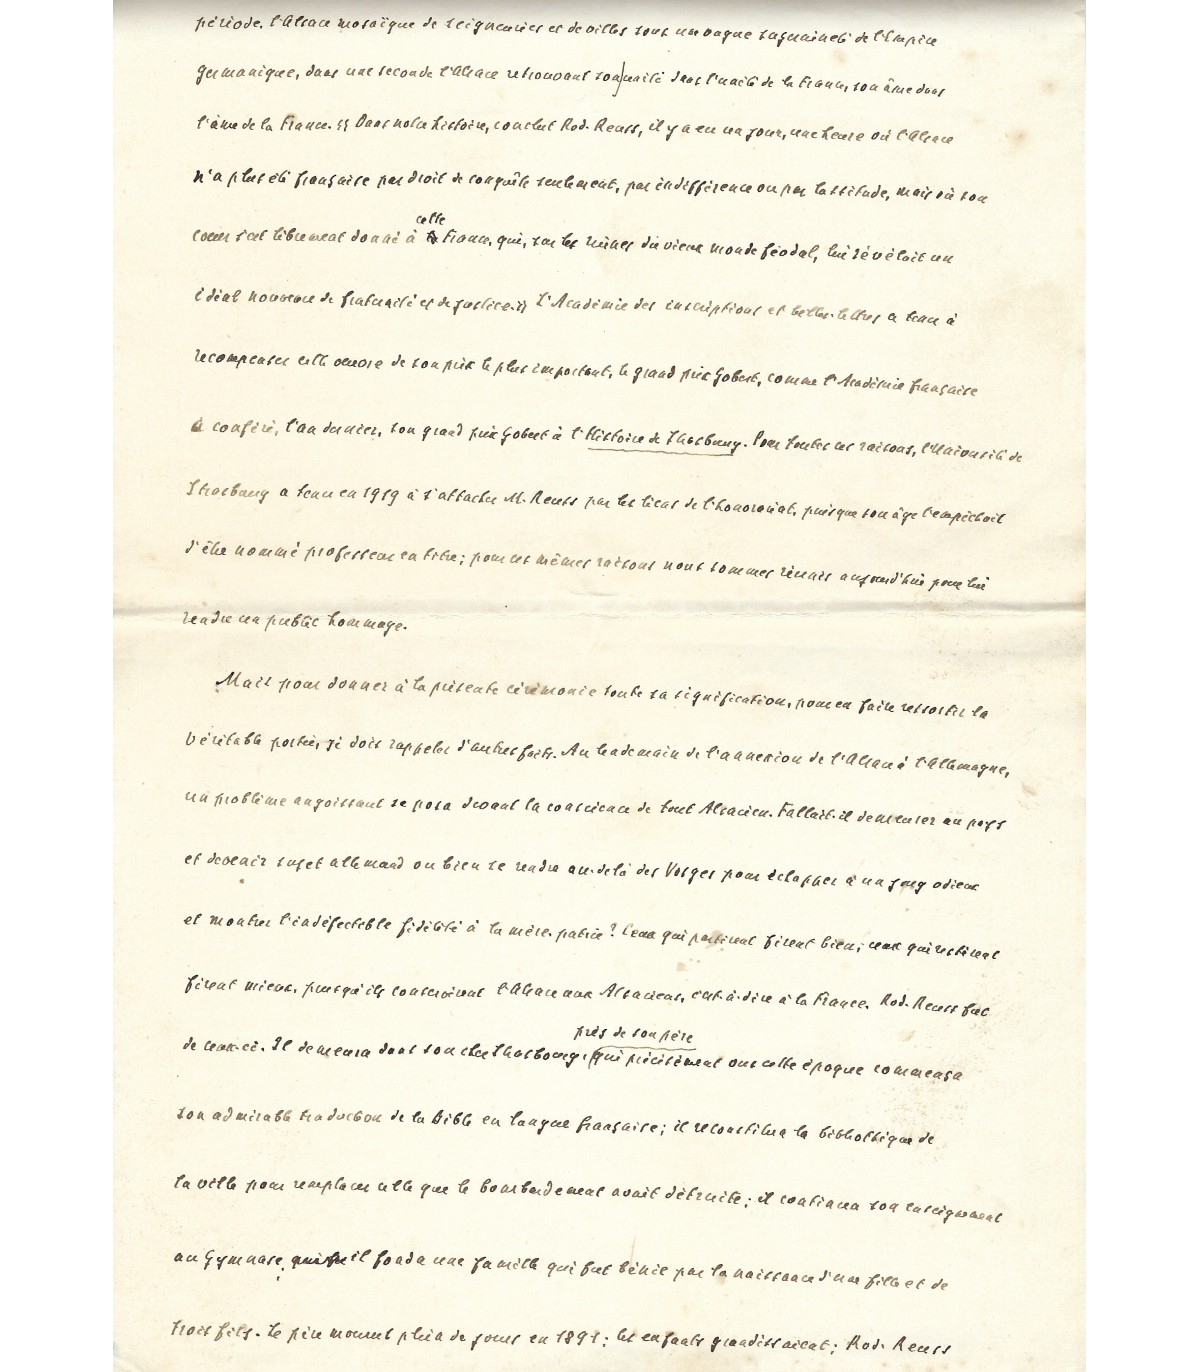 période. l'Alsace mosaïque de seigneuries et de villes sous un vague suzeraineté de l'Empire
germanique, dans une seconde l'Alsace retrouvant son unité dans l'unité de la France, son âme dans
l'âme de la France. « Dans notre histoire, conclut Rod. Reuss, il y a eu un jour, une heure où l'Alsace
n'a plus été française par droit de conquête seulement, par indifférence ou par lassitude, mais où son
cœur s'est librement donné à cette France, qui, sur les ruines du vieux monde féodal, lui révélait un
idéal nouveau de fraternité et de justice. » L'Académie des inscriptions et belles-lettres a tenu à
récompenser cette œuvre de son prix le plus important, le grand prix Gobert, comme l'Académie française
a conféré, l'an dernier, son grand prix Gobert à l'Histoire de Strasbourg. Pour toutes ces raisons, l'Université de
Strasbourg a tenu en 1919 à s'attacher M. Reuss par les liens de l'honorariat, puisque son âge l'empêchait
d'être nommé professeur en titre; pour ces mêmes raisons nous sommes réunis aujourd'hui pour lui
rendre un public hommage.
Mais pour donner à la présente cérémonie toute sa signification, pour en faire ressortir la
véritable portée, je dois rappeler d'autres faits. Au lendemain de l'annexion de l'Alsace à l'Allemagne,
un problème angoissant se posa devant la conscience de tout Alsacien. Fallait-il demeurer au pays
et devenir sujet allemand ou bien se rendre au-delà des Vosges pour échapper à un joug odieux
et montrer l'indéfectible fidélité à la mère-patrie? Ceux qui partirent firent bien; ceux qui restèrent
firent mieux, puisqu'ils conservèrent l'Alsace aux Alsaciens, c'est-à-dire à la France. Rod. Reuss fut
de ceux-ci. Il demeura dans son cher Strasbourg, près de son père qui précisément vers cette époque commença
son admirable traduction de la Bible en langue française; il reconstitua la bibliothèque de
la ville pour remplacer celle que le bombardement avait détruite; il continua son enseignement
au Gymnase, il fonda une famille qui fut bénie par la naissance d'une fille et de
trois fils. Le père mourut plein de jours en 1891; les enfants grandissaient; Rod. Reuss